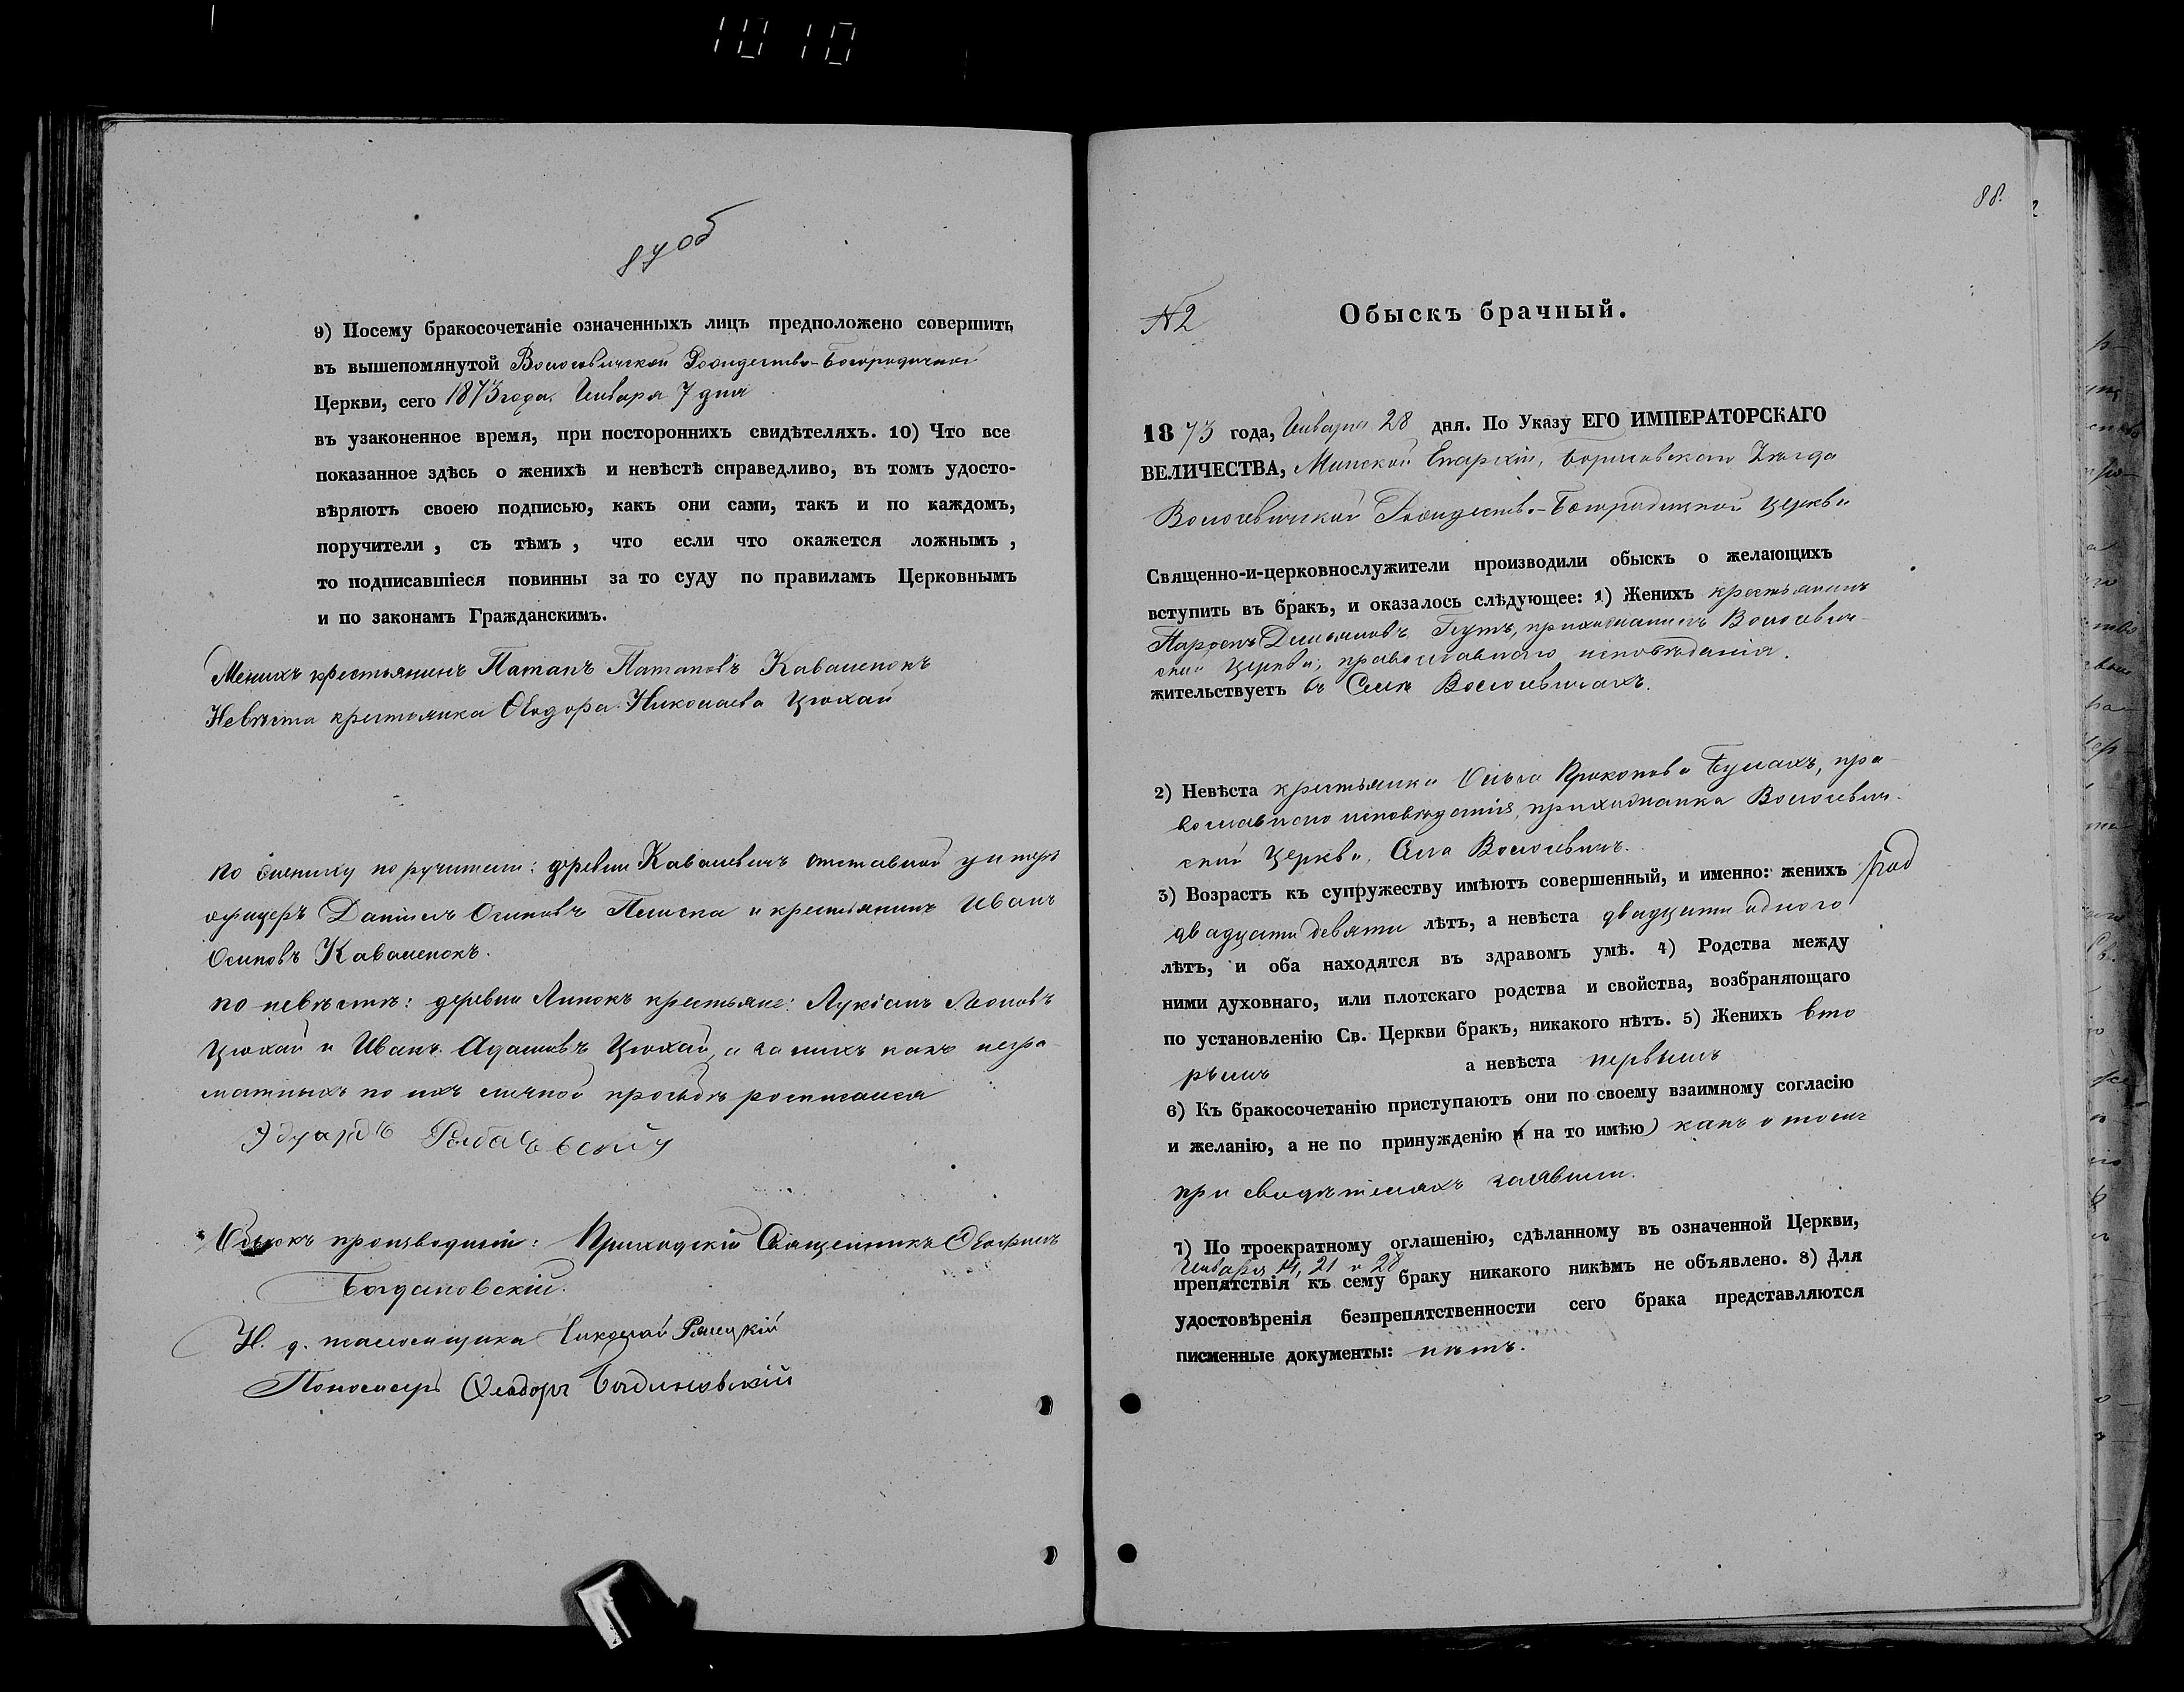 1010
87об
9) Посему бракосочетаніе означенныхъ лицъ предположено совершить
въ вышепомянутой Волосевичской Рождество-Богородичной
Церкви, сего 1873 года. Января 7 дня
въ узаконенное время, при постороннихъ свидѣтеляхъ. 10) Что все
показанное здѣсь о женихѣ и невѣстѣ справедливо, въ томъ удосто-
вѣряютъ своею подписью, какъ они сами, такъ и по каждомъ,
поручители, съ тѣмъ, что если что окажется ложнымъ,
то подписавшіеся повинны за то суду по правиламъ Церковнымъ
и по законамъ Гражданскимъ.
Женихъ крестьянинъ Патапъ Патаповъ Каваленокъ
Невѣста крестьянка Ѳеодора Николаева Цюхай
по жениху поручители: деревни Кавалевичъ отставной унтеръ
офицеръ Даніилъ Осиповъ и крестьянинъ Иванъ
Осиповъ Каваленокъ.
по невѣстѣ: деревни крестьяне: Лукіанъ Леоновъ
Цюхай и Иванъ Адамовъ Цюхай, а за нихъ какъ негра-
мотныхъ по ихъ личной просьбѣ росписался
Эдуардъ
Обыскъ производили: Приходскій Священникъ
Богдановскій.
И. д. псаломщика Николай
Пономарь Ѳеодоръ Богдановскій
88.
№2
Обыскъ брачный.
1873 года, Января 28 дня. По Указу ЕГО ИМПЕРАТОРСКАГО
ВЕЛИЧЕСТВА, Минской Епархіи, Борисовскаго Уѣзда
Волосевичской Рождество-Богородицкой церкви
Священно-и-церковнослужители производили обыскъ о желающихъ
вступить въ бракъ, и оказалось слѣдующее: 1) Женихъ крестьянинъ
Демьяновъ прихожанинъ Волосевич-
ской церкви, православнаго исповѣданія.
жительствуетъ въ Селѣ Волосевичахъ.
2) Невѣста крестьянка Ольга Прокопова пра-
вославного исповѣданія, прихожанка Волосевич-
ской церкви, Села Волосевичъ.
3) Возрастъ къ супружеству имѣютъ совершенный, и именно: женихъ
двадцати девяти лѣтъ, а невѣста двадцати одного
лѣтъ, и оба находятся въ здравомъ умѣ. 4) Родства между
ними духовнаго, или плотскаго родства и свойства, возбраняющаго
по установленію Св. Церкви бракъ, никакого нѣтъ. 5) Женихъ вто
рымъ а невѣста первымъ
6) Къ бракосочетанію приступаютъ они по своему взаимному согласію
и желанію, а не по принужденію (и на то имѣю) какъ о томъ
при свидѣтеляхъ заявили.
7) По троекратному оглашенію, сдѣланному въ означенной Церкви,
Января 14, 21 и 28
препятствія къ сему браку никакого никѣмъ не объявлено. 8) Для
удостовѣренія безпрепятственности сего брака представляются
писменные документы: нѣтъ.